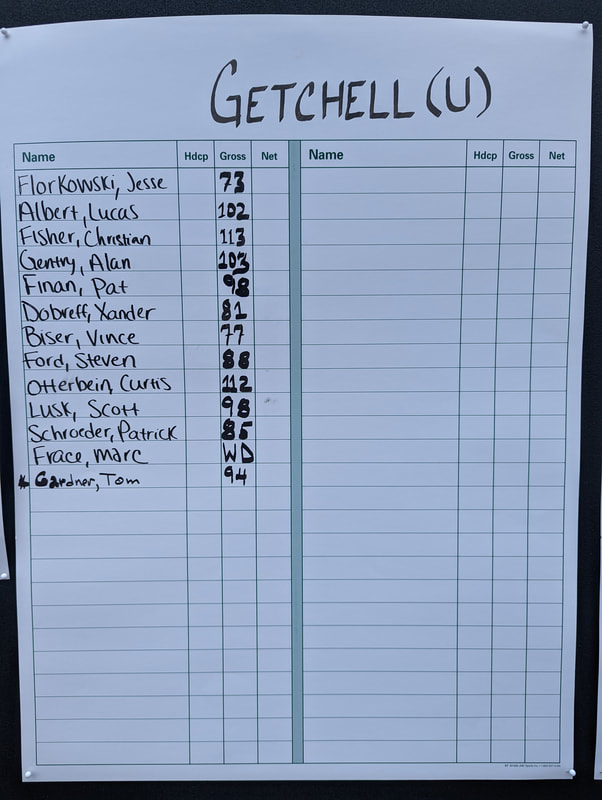 GETCHELL (U)
Name Hdcp Gross Net Name Hdcp Gross Net
Florkowski, Jesse 73
Albert, Lucas 102
Fisher, Christian 113
Gentry, Alan 103
Finan, Pat 98
Dobreff, Xander 81
Biser, Vince 77
Ford, Steven 88
Otterbein, Curtis 112
Lusk, Scott 98
Schroeder, Patrick 85
Frace, Marc WD
* Gardner, Tom 94